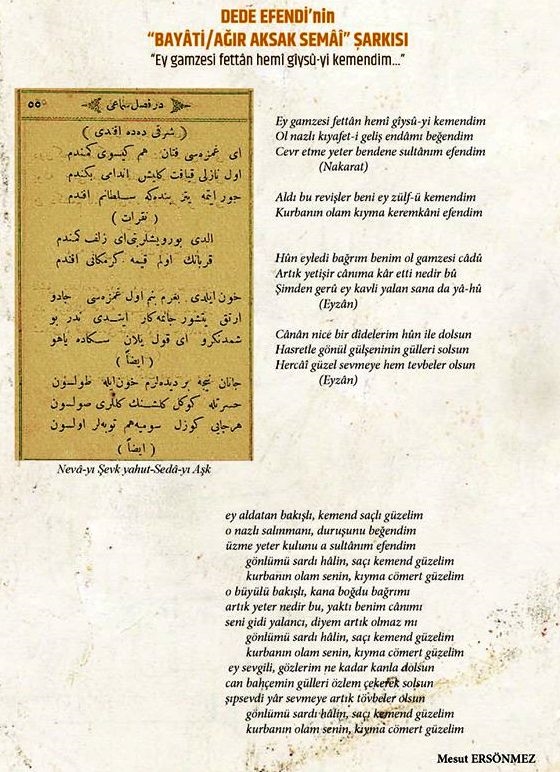 DEDE EFENDİ’nin
“BAYÂTİ/AĞIR AKSAK SEMÂİ” ŞARKISI
“Ey gamzesi fettân hemî gîysû-yi kemendim...”
٥٥ در فصل سماعی
( شرقی دده افندی )
ای غمزه‌سی فتان هم کیسوی کمندم
اول نازلی قیافت کلیش اندامی بکندم
جور ایتمه یتر بنده‌که سلطانم افندم
( نقرات )
الدی بو روشلر بنی ای زلف کمندم
قربانك اولم قیمه کرمکانی افندم
خون ایلدی بغرم بنم اول غمزه‌سی جادو
ارتق یتشور جانمه کار ایتدی ندر بو
شمدنکرو ای قول یلان سکاده یاهو
( ایضاً )
جانان نیجه بر دیده‌لرم خون ایله طولسون
حسرتله کوکل کلشنك کللری صولسون
هرجایی کوزل سومیه هم توبه‌لر اولسون
( ایضاً )
Nevâ-yı Şevk yahut-Sedâ-yı Aşk
Ey gamzesi fettân hemî gîysû-yi kemendim
Ol nazlı kıyafet-i geliş endâmı beğendim
Cevr etme yeter bendene sultânım efendim
(Nakarat)
Aldı bu revişler beni ey zülf-ü kemendim
Kurbanın olam kıyma keremkâni efendim
Hûn eyledi bağrım benim ol gamzesi câdû
Artık yetişir cânıma kâr etti nedir bû
Şimden gerû ey kavli yalan sana da yâ-hû
(Eyzân)
Cânân nice bir dîdelerim hûn ile dolsun
Hasretle gönül gülşeninin gülleri solsun
Hercaî güzel sevmeye hem tevbeler olsun
(Eyzân)
ey aldatan bakışlı, kemend saçlı güzelim
o nazlı salınmanı, duruşunu beğendim
üzme yeter kulunu a sultânım efendim
gönlümü sardı hâlin, saçı kemend güzelim
kurbanın olam senin, kıyma cömert güzelim
o büyülü bakışlı, kana boğdu bağrımı
artık yeter nedir bu, yaktı benim cânımı
seni gidi yalancı, diyem artık olmaz mı
gönlümü sardı hâlin, saçı kemend güzelim
kurbanın olam senin, kıyma cömert güzelim
ey sevgili, gözlerim ne kadar kanla dolsun
can bahçemin gülleri özlem çekerek solsun
şıpsevdi yâr sevmeye artık tövbeler olsun
gönlümü sardı hâlin, saçı kemend güzelim
kurbanın olam senin, kıyma cömert güzelim
Mesut ERSÖNMEZ